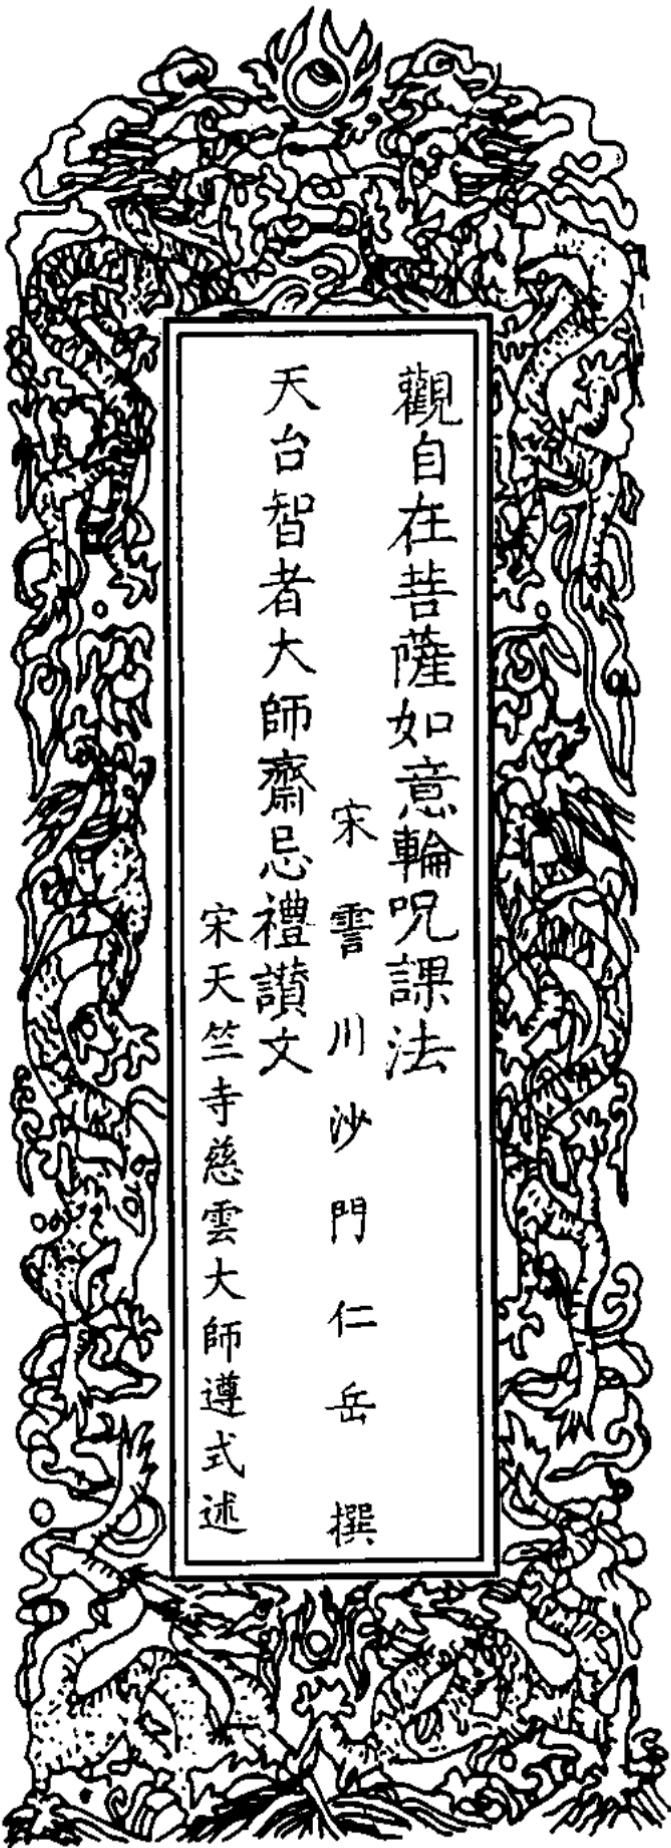 觀自在菩薩如意輪呪課法
宋霅川沙門仁岳撰
天台智者大師齋忌禮讚文
宋天竺寺慈雲大師遵式述